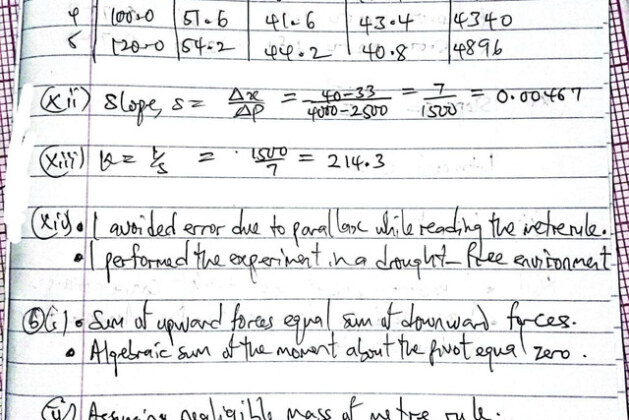 4 100.0 51.6 41.6 43.4 4340
5 120.0 54.2 44.2 40.8 4896
(xii) Slope, s = Δx/Δp = 40-33/4000-2500 = 7/1500 = 0.00467
(xiii) k = 1/s = 1500/7 = 214.3
(xiv) • I avoided error due to parallax while reading the metre rule.
• I performed the experiment in a drought-free environment
(b)(i) • Sum of upward forces equal sum of downward forces.
• Algebraic sum of the moment about the pivot equal zero.
(ii) Assuming negligible mass of metre rule.